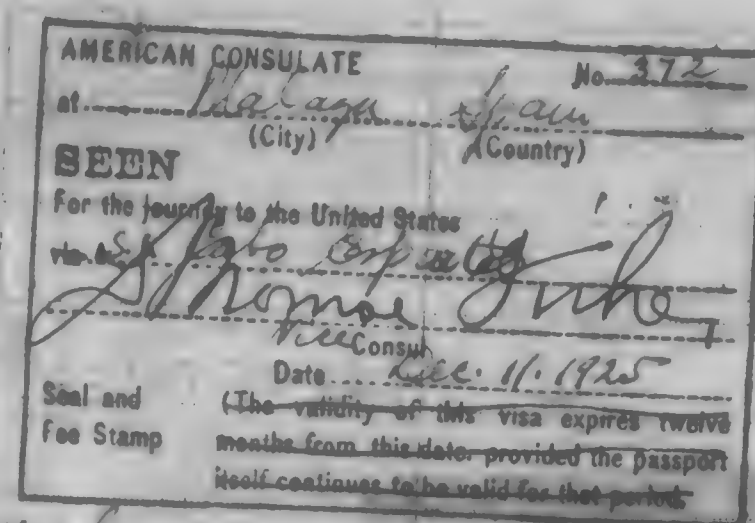 AMERICAN CONSULATE No. 372
at Malaga Spain
(City) (Country)
SEEN
For the journey to the United States
via S.S. Cabo Espartel
Thomas
Vice Consul
Date Dec. 11. 1925
Seal and Fee Stamp
(The validity of this visa expires twelve
months from this date, provided the passport
itself continues to be valid for that period.